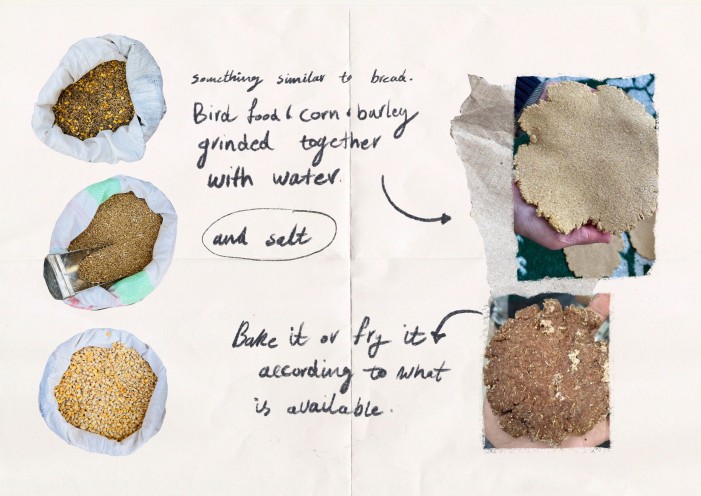 something similar to bread.
Bird food & corn & barley
grinded together
with water.
and salt
Bake it or fry it
according to what
is available.